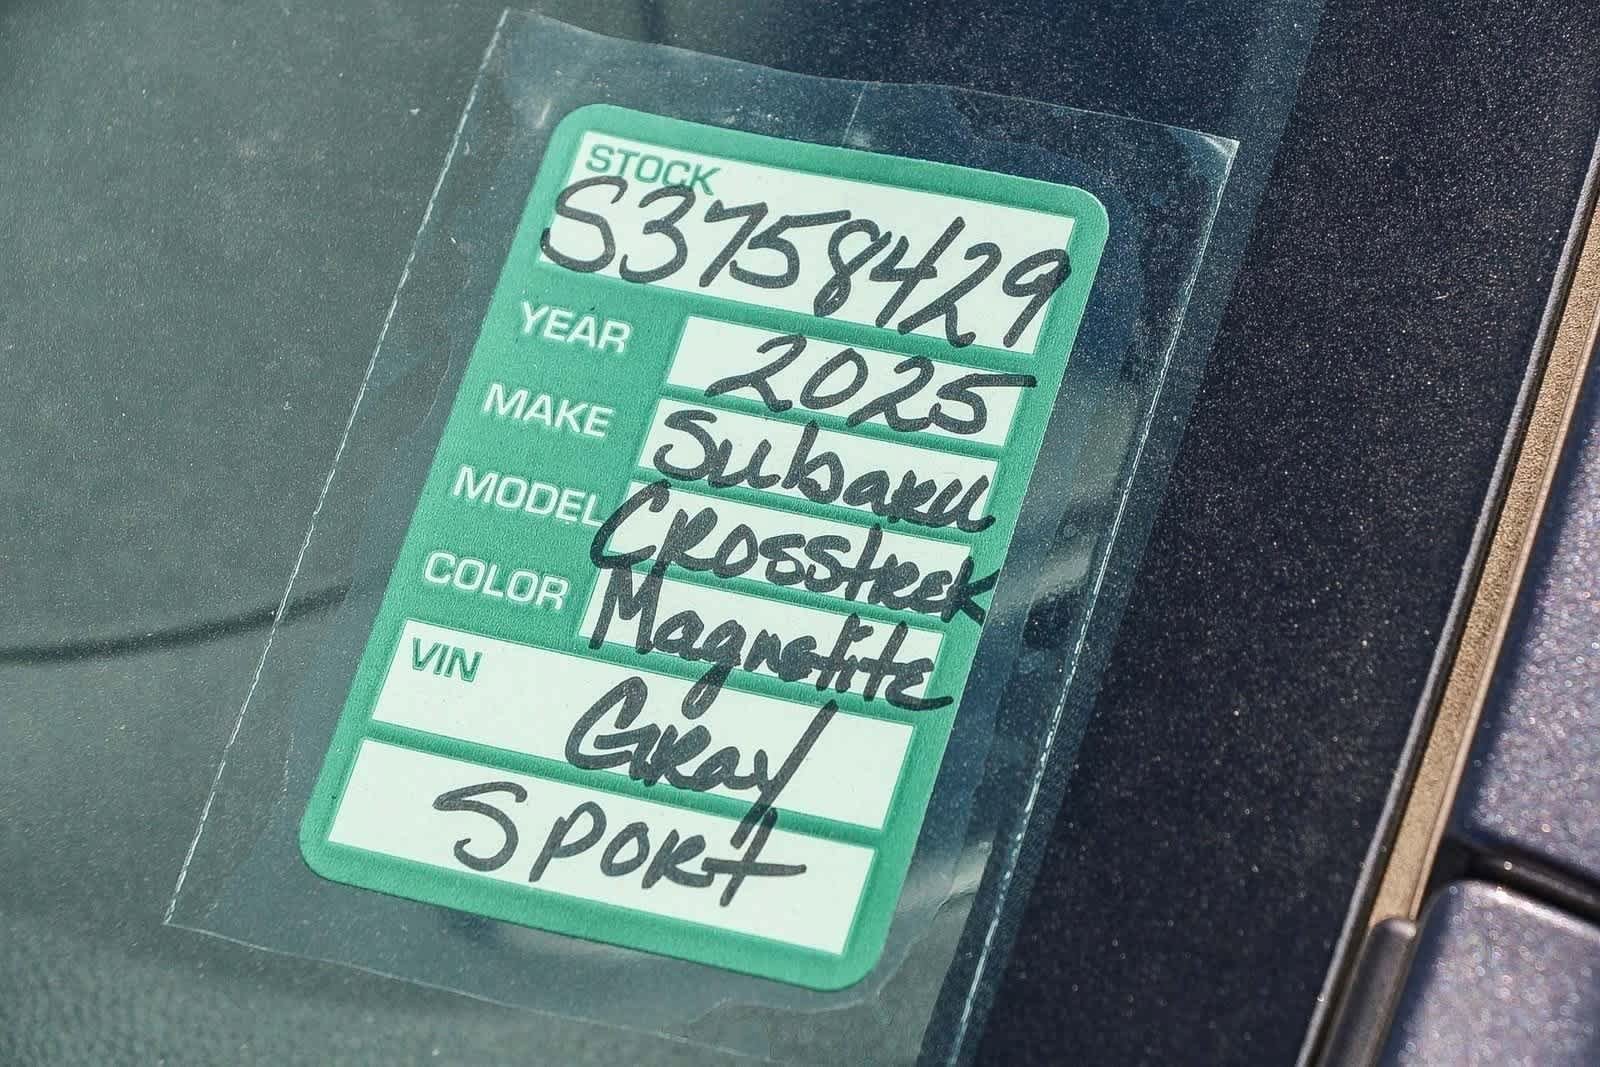 STOCK
S3758429
YEAR 2025
MAKE Subaru
MODEL Crosstrek
COLOR Magnetite
VIN Gray
Sport